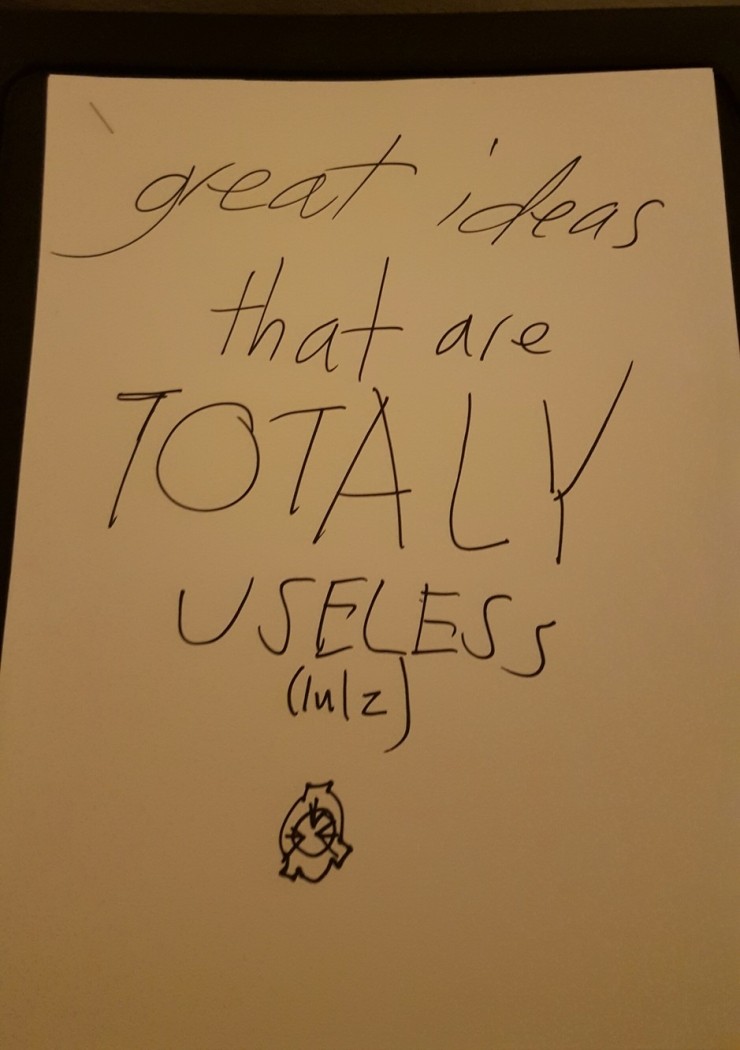 great ideas
that are
TOTALY
USELESS
(lulz)